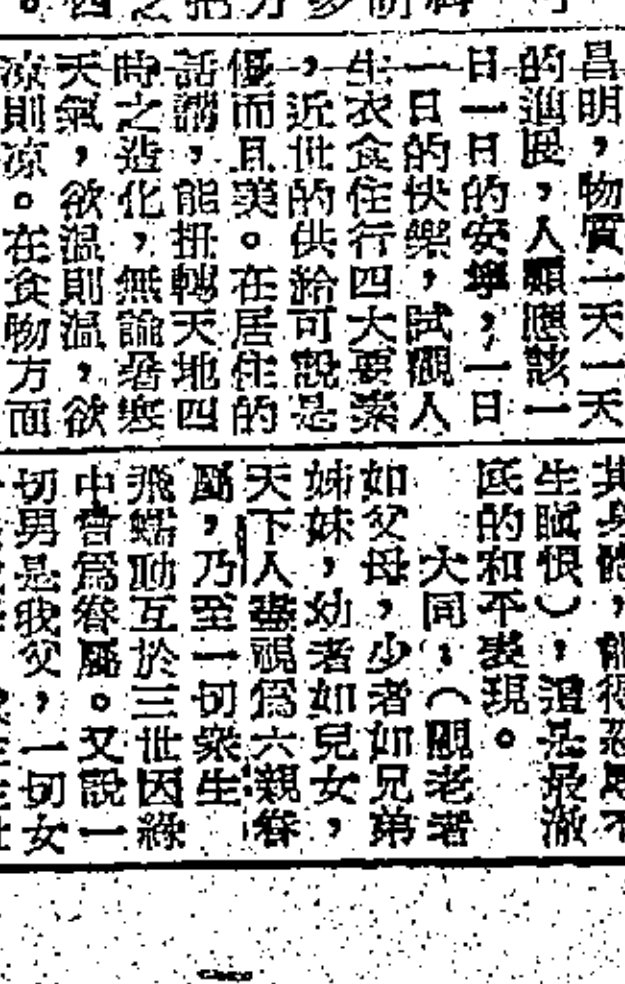 昌明，物質一天一天
的進展，人類應該一
日一日的安寧，一日
一日的快樂，試觀人
生衣食住行四大要素
，近世的供給可說是
優而且美。在居住的
話講，能扭轉天地四
時之造化，無論暑寒
天氣，欲溫則溫，欲
涼則涼。在食物方面
生瞋恨），這是最澈
底的和平表現。
大同：（觀老者
如父母，少者如兄弟
姊妹，幼者如兒女，
天下人盡視為六親眷
屬，乃至一切眾生
飛蠕動互於三世因緣
中曾為眷屬。又說一
切男是我父，一切女